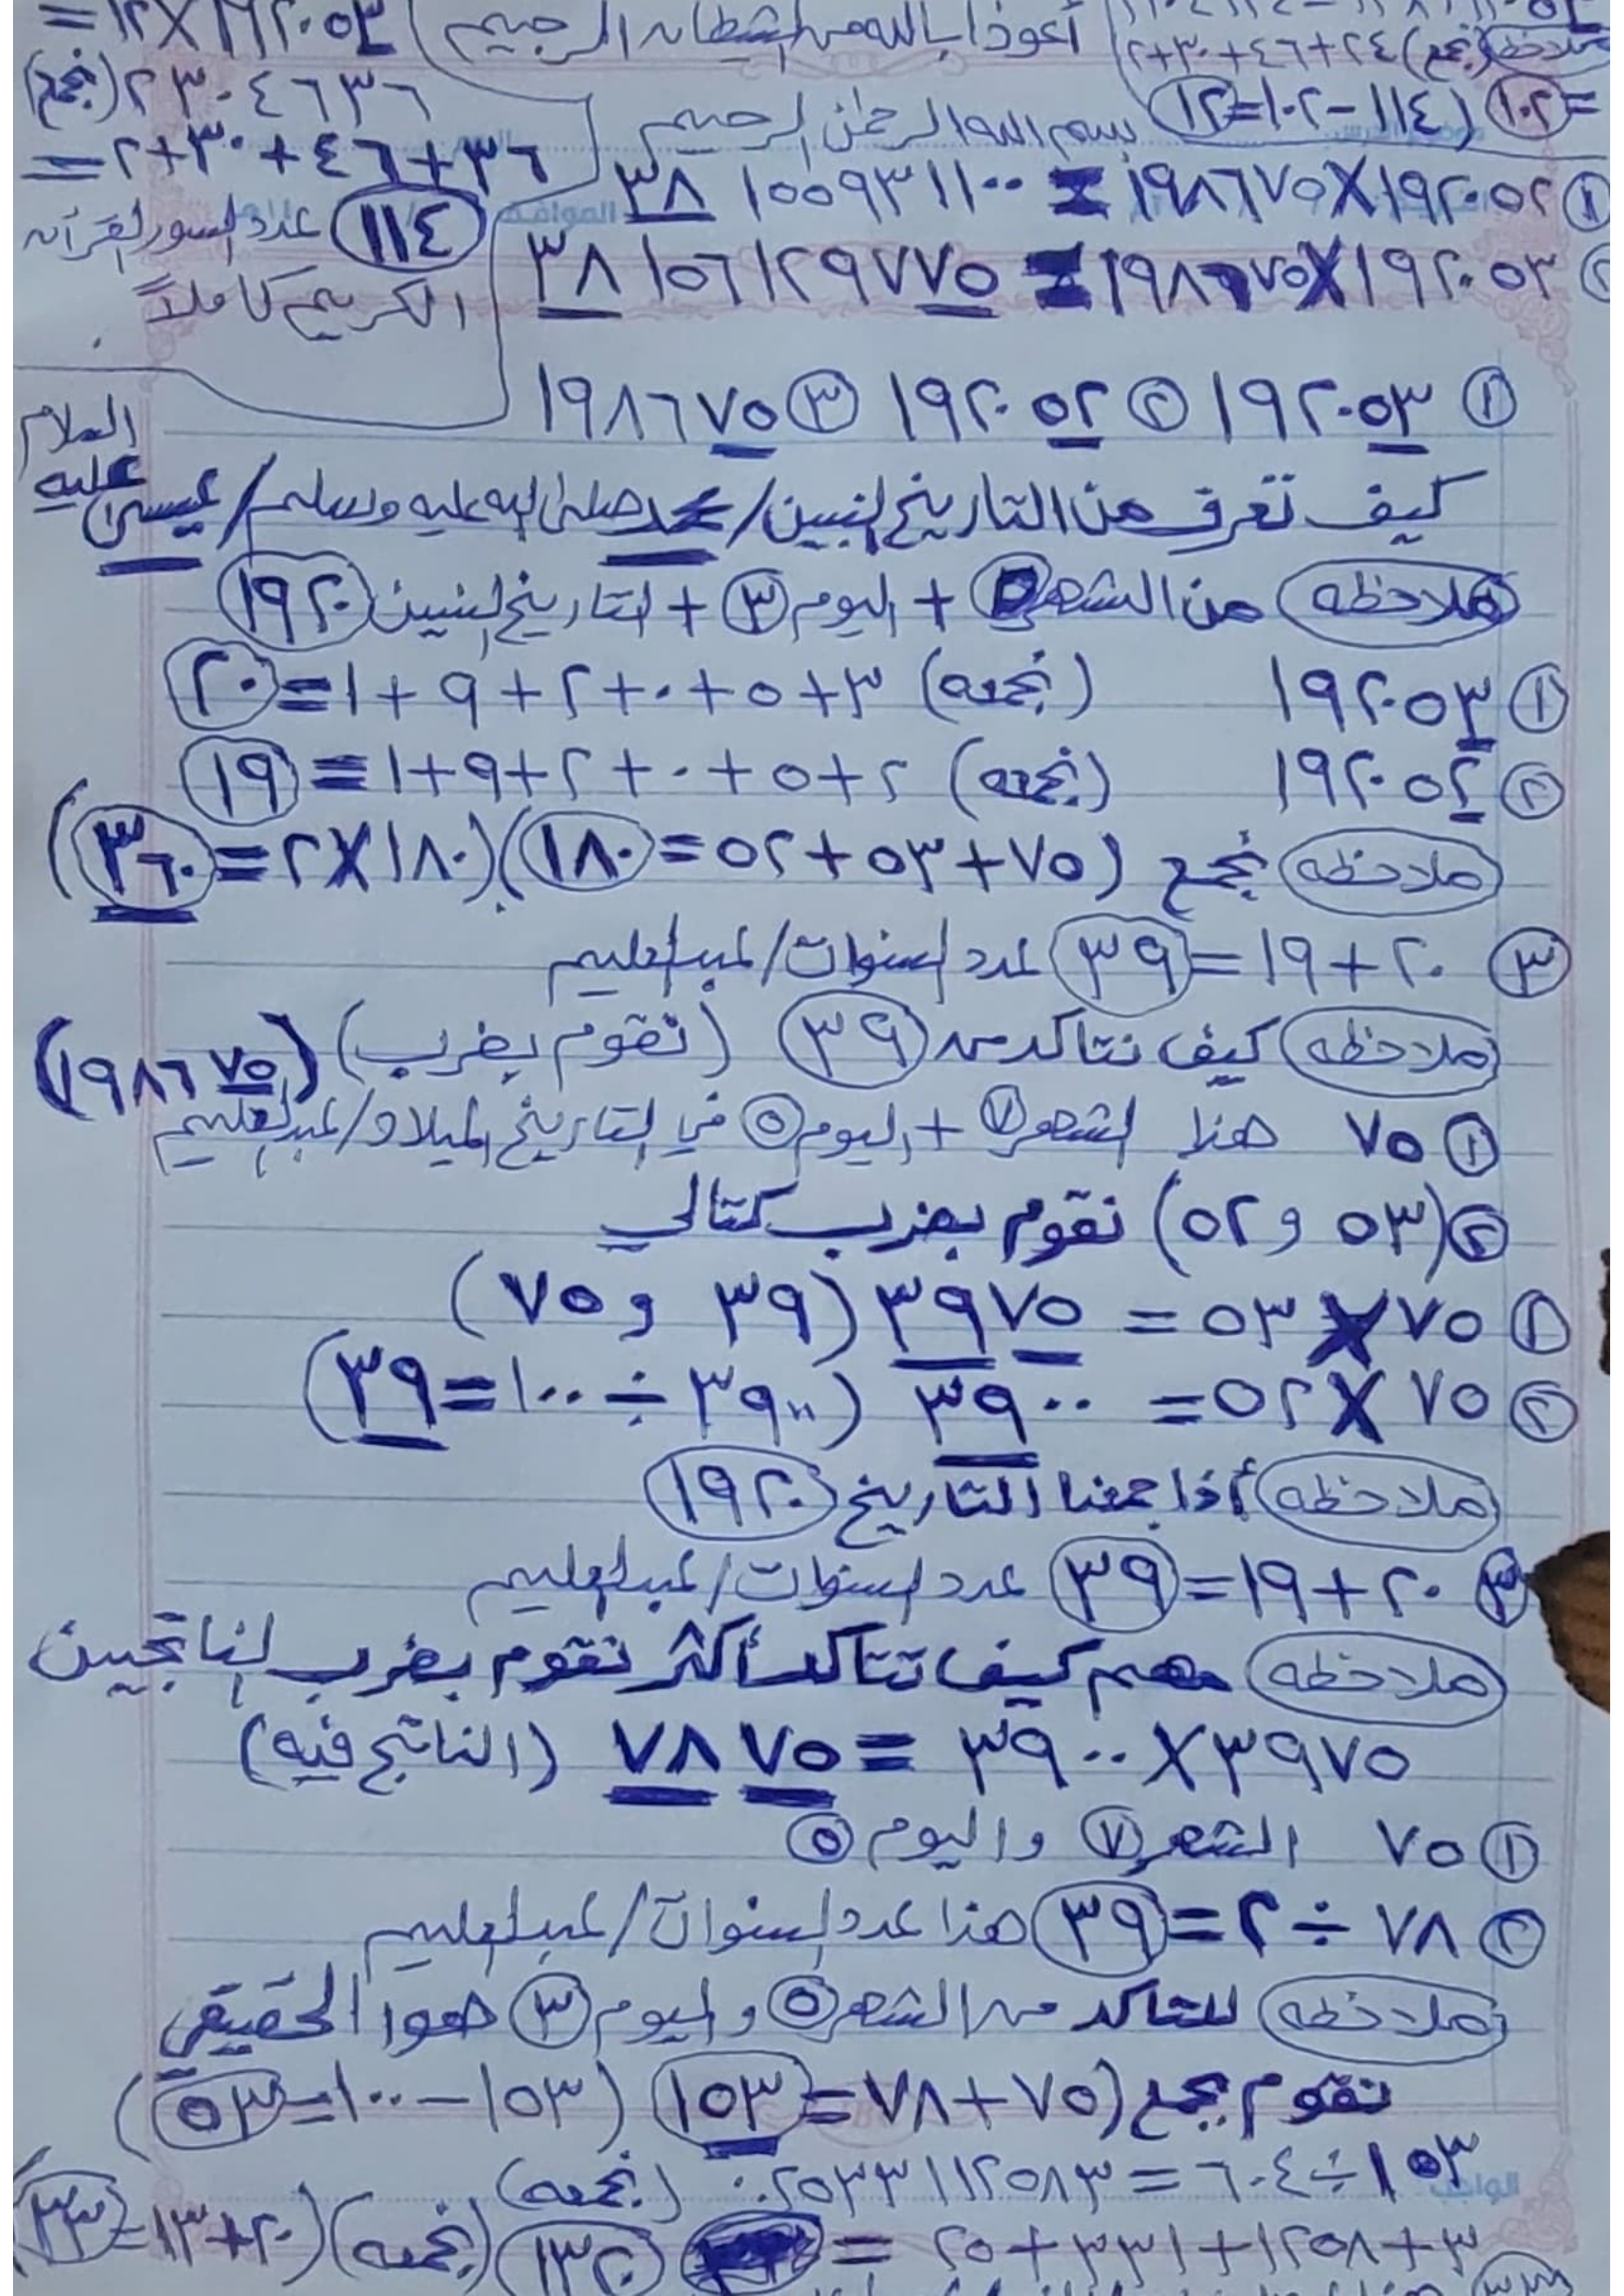 أعوذ بالله من الشيطان الرجيم
١٩٢٠٥٣ × ١٢ =
٢٣٠٤٦٣٦ (نجمع)
٣٦ + ٤٦ + ٣٠ + ٢ =
(١١٤) عدد السور القرآن
الكريم كاملاً
ملاحظه (نجمع) ٢٤ + ٤٦ + ٣٠ + ٢
= (١٠٢) (١١٤ - ١٠٢ = ١٢)
بسم الله الرحمن الرحيم
① ١٩٢٠٥٢ × ١٩٨٦٧٥ = ٣٨١٥٥٩٣١١٠٠
② ١٩٢٠٥٣ × ١٩٨٦٧٥ = ٣٨١٥٦١٢٩٧٧٥
① ١٩٢٠٥٣ ② ١٩٢٠٥٢ ③ ١٩٨٦٧٥
كيف تعرف من التاريخ لنبين / محمد صلى الله عليه وسلم / عيسى عليه السلام
ملاحظه من الشهر ٥ + اليوم ③ + التاريخ لنبيين (١٩٢٠)
① ١٩٢٠٥٣ (نجمعه) ٣ + ٥ + ٠ + ٢ + ٩ + ١ = (٢٠)
② ١٩٢٠٥٢ (نجمعه) ٢ + ٥ + ٠ + ٢ + ٩ + ١ = (١٩)
ملاحظه نجمع (٧٥ + ٥٣ + ٥٢ = ١٨٠) (١٨٠ × ٢ = ٣٦٠)
③ ٢٠ + ١٩ = (٣٩) عدد السنوات / عبدالعليم
ملاحظه كيف نتاكد من (٣٩) (نقوم بضرب) (١٩٨٦٧٥)
① ٧٥ هنا الشهر ⑦ + اليوم ⑤ في التاريخ الميلاد / عبدالعليم
② (٥٣ و ٥٢) نقوم بضرب كتالي
① ٧٥ × ٥٣ = ٣٩٧٥ (٣٩ و ٧٥)
② ٧٥ × ٥٢ = ٣٩٠٠ (٣٩٠٠ ÷ ١٠٠ = ٣٩)
ملاحظه أذا جمعنا التاريخ (١٩٢٠)
③ ٢٠ + ١٩ = (٣٩) عدد السنوات / عبدالعليم
ملاحظه مهم كيف تتاكد أكثر نقوم بضرب لناتجين
٣٩٧٥ × ٣٩٠٠ = ٧٨٧٥ (الناتج فيه)
① ٧٥ الشهر ⑦ واليوم ⑤
② ٧٨ ÷ ٢ = (٣٩) هنا عدد السنوات / عبدالعليم
ملاحظه للتاكد من الشهر ⑤ واليوم ③ هوا الحقيقي
نقوم بجمع (٧٥ + ٧٨ = ١٥٣) (١٥٣ - ١٠٠ = ٥٣)
١٥٣ ÷ ٦٠٤ = ٠.٢٥٣٣١١٢٥٨٣ (نجمعه)
٣ + ١٢٥٨ + ٣٣١ + ٢٥ = (١٣٢٠) (نجمعه) (٢٠ + ١٣ = ٣٣)